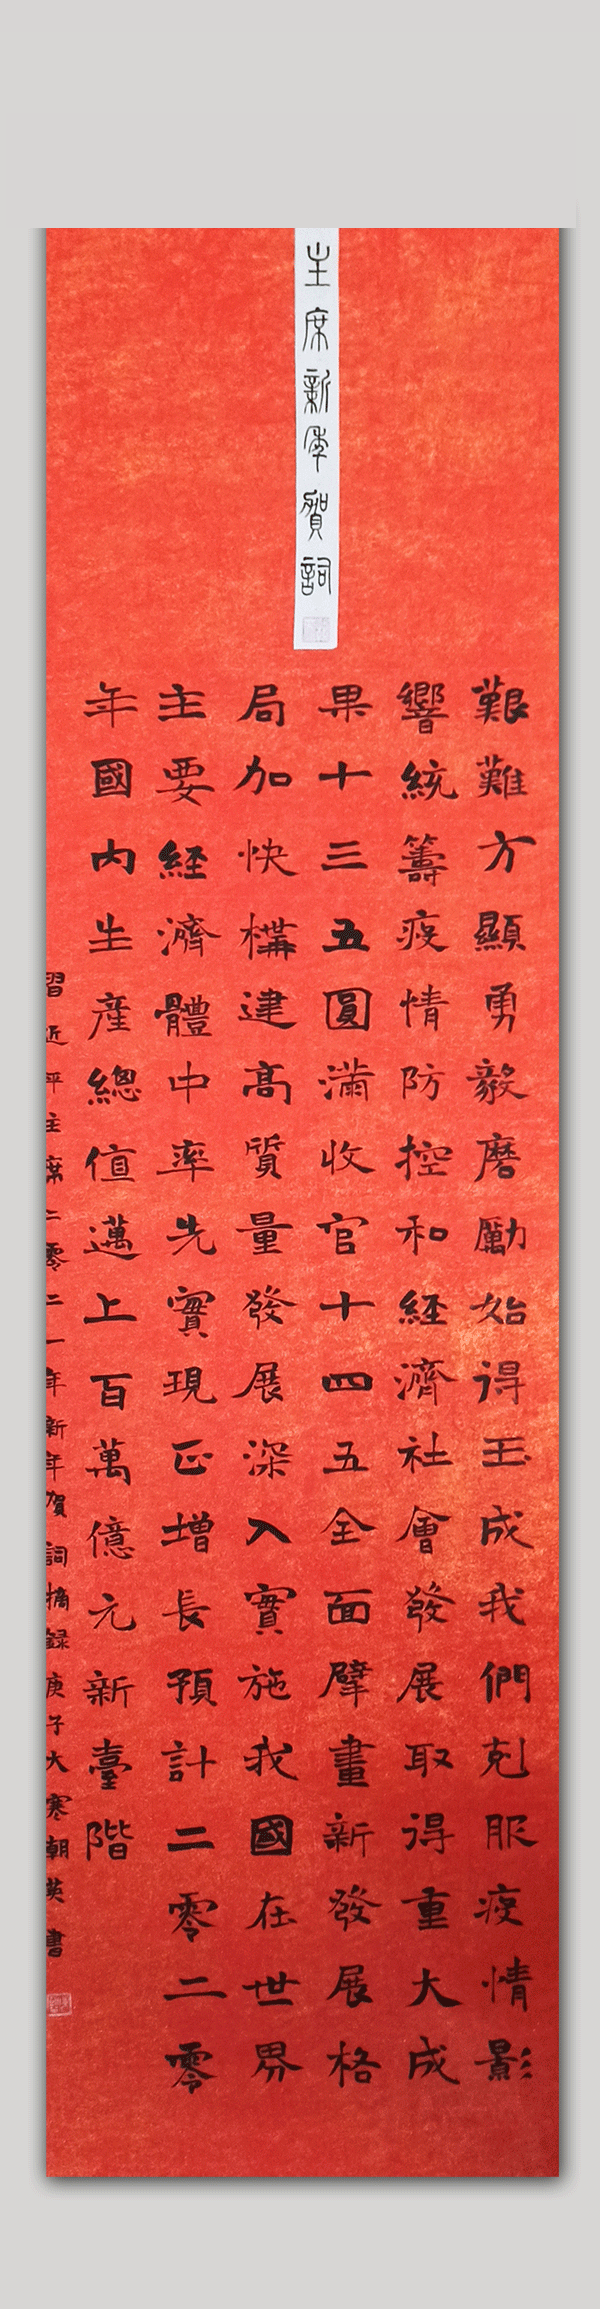 主席新年賀詞
艱難方顯勇毅磨勵始得玉成我們克服疫情影
響統籌疫情防控和経濟社會發展取得重大成
果十三五圓滿收官十四五全面擘畫新發展格
局加快構建高質量發展深入實施我國在世界
主要経濟體中率先實現正增長預計二零二零
年國内生産總值邁上百萬億元新臺階
習近平主席二零二一年新年賀詞摘録庚子大寒朝英書